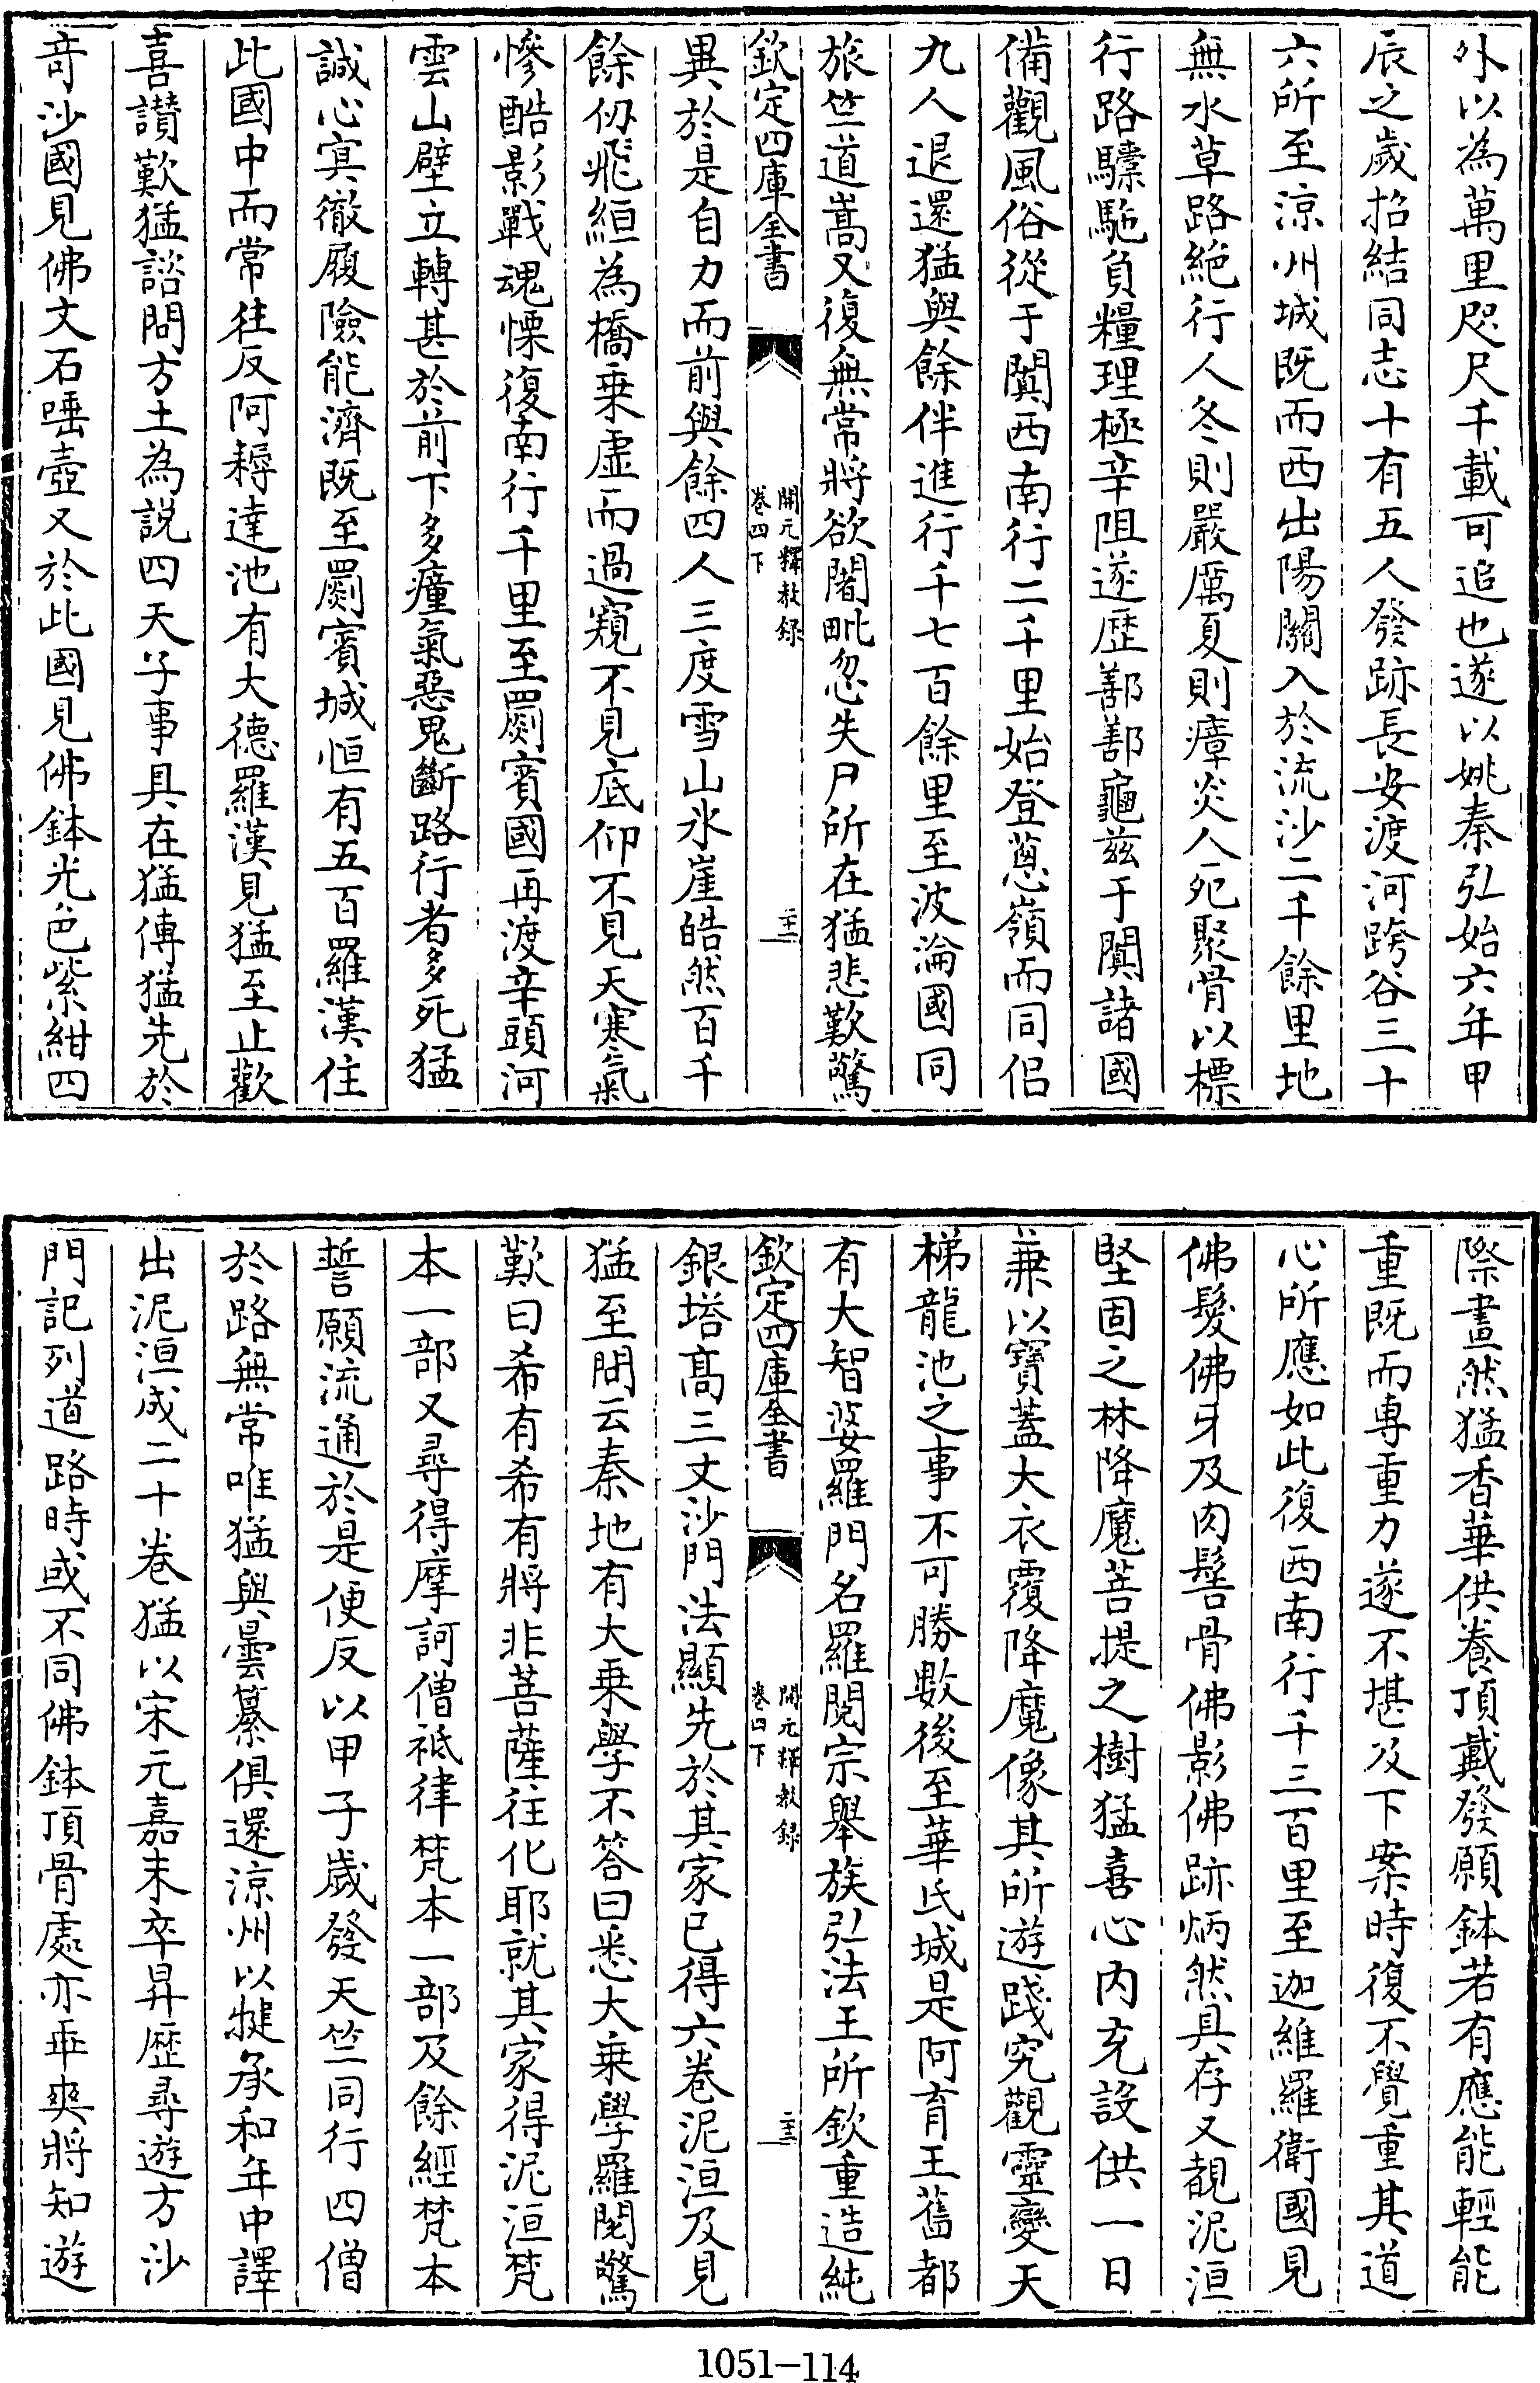 外以為萬里咫尺千載可追也遂以姚秦弘始六年甲
辰之歲招結同志十有五人發跡長安渡河跨谷三十
六所至涼州城既而西出陽關入於流沙二千餘里地
無水草路絶行人冬則嚴厲夏則瘴炎人死聚骨以標
行路驝駞負糧理極辛阻遂歴鄯鄯龜兹于闐諸國
備觀風俗從于闐西南行二千里始登蔥嶺而同侣
九人退還猛與餘伴進行千七百餘里至波淪國同
旅竺道嵩又復無常將欲闍毗忽失尸所在猛悲歎驚
欽定四庫全書
開元釋教録
卷四下
二十一
異於是自力而前與餘四人三度雪山氷崖皓然百千
餘仞飛絙為橋乗虚而過窺不見底仰不見天寒氣
慘酷影戰魂慄復南行千里至罽賓國再渡辛頭河
雲山壁立轉甚於前下多瘴氣惡鬼斷路行者多死猛
誠心冥徹履險能濟既至罽賓城恒有五百羅漢住
此國中而常往反阿耨達池有大德羅漢見猛至止歡
喜讃歎猛諮問方土為説四天子事具在猛傳猛先於
竒沙國見佛文石唾壺又於此國見佛鉢光色紫紺四
際盡然猛香華供養頂戴發願鉢若有應能輕能
重既而專重力遂不堪及下案時復不覺重其道
心所應如此復西南行千三百里至迦維羅衛國見
佛髮佛牙及肉髻骨佛影佛跡炳然具存又覩泥洹
堅固之林降魔菩提之樹猛喜心内充設供一日
兼以寶蓋大衣覆降魔像其所遊踐究觀靈變天
梯龍池之事不可勝數後至華氏城是阿育王舊都
有大智婆羅門名羅閲宗舉族弘法王所欽重造純
欽定四庫全書
開元釋教録
卷四下
二十二
銀塔髙三丈沙門法顯先於其家已得六卷泥洹及見
猛至問云秦地有大乗學不答曰悉大乗學羅閲驚
歎曰希有希有將非菩薩往化耶就其家得泥洹梵
本一部又尋得摩訶僧祗律梵本一部及餘經梵本
誓願流通於是便反以甲子歲發天竺同行四僧
於路無常唯猛與曇纂俱還涼州以揵承和年中譯
出泥洹成二十卷猛以宋元嘉末卒昇歴尋遊方沙
門記列道路時或不同佛鉢頂骨處亦乖爽將知遊
1051—114